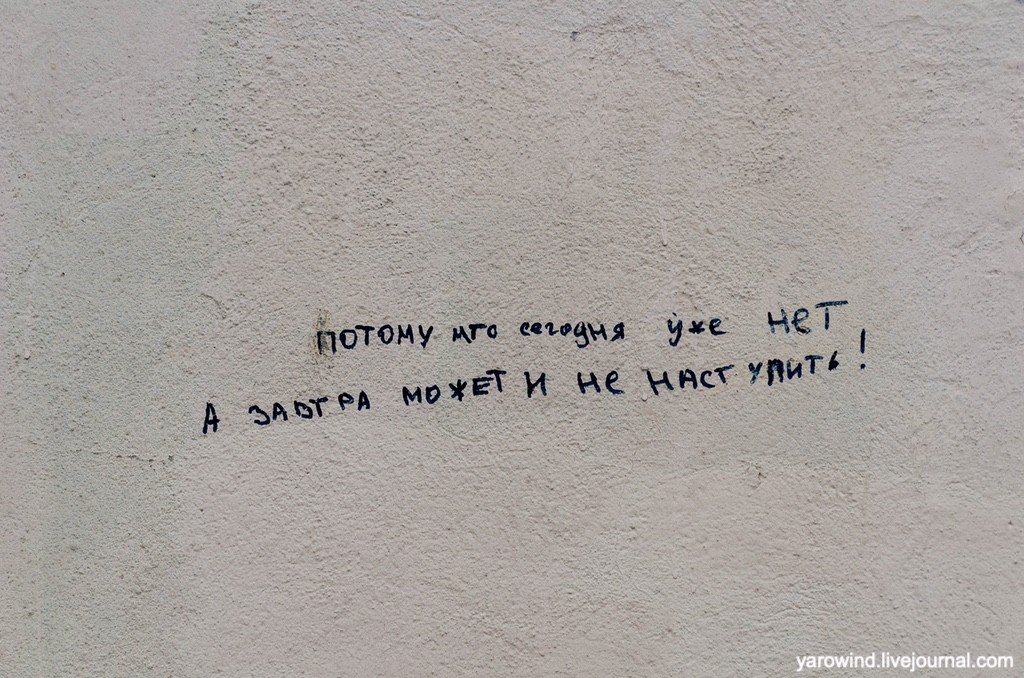 ПОТОМУ что сегодня уже НЕТ
А ЗАВТРА МОЖЕТ И НЕ НАСТУПИТЬ!
yarowind.livejournal.com